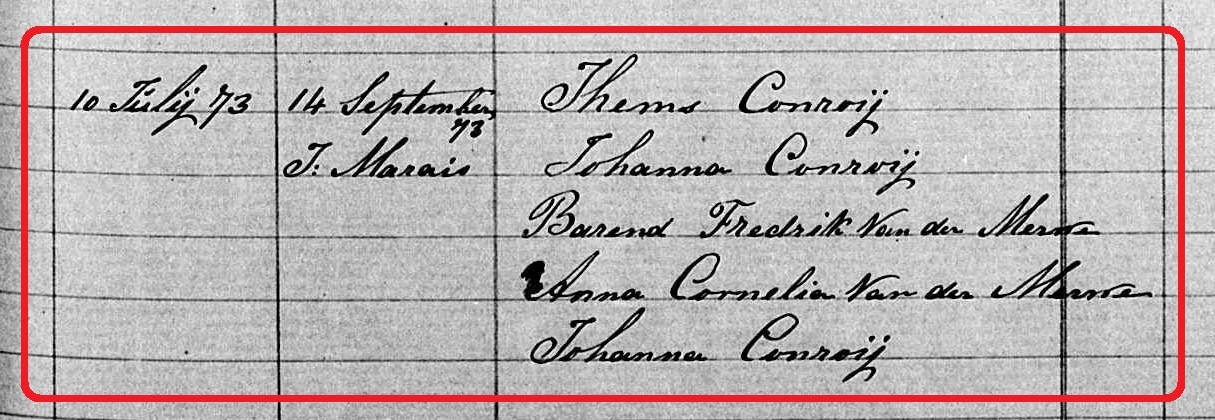 10 Julij 73
14 September
73
J: Marais
Thems Conroij
Johanna Conroij
Barend Fredrik Van der Merwe
Anna Cornelia Van der Merwe
Johanna Conroij